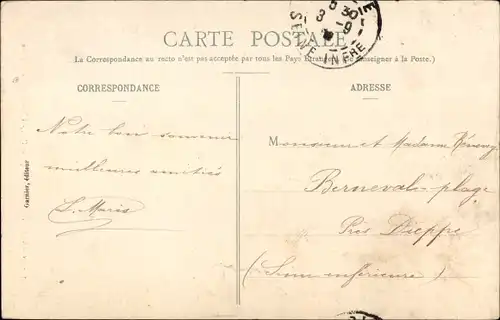 CARTE POSTALE
(La Correspondance au recto n'est pas acceptée par tous les Pays étrangers. Se renseigner à la Poste.)
CORRESPONDANCE
ADRESSE
Notre bon souvenir
meilleures amitiés
Monsieur et Madame
Berneval-plage
Près Dieppe
(Seine inférieure)
Garnier, éditeur
SEINE INFRE